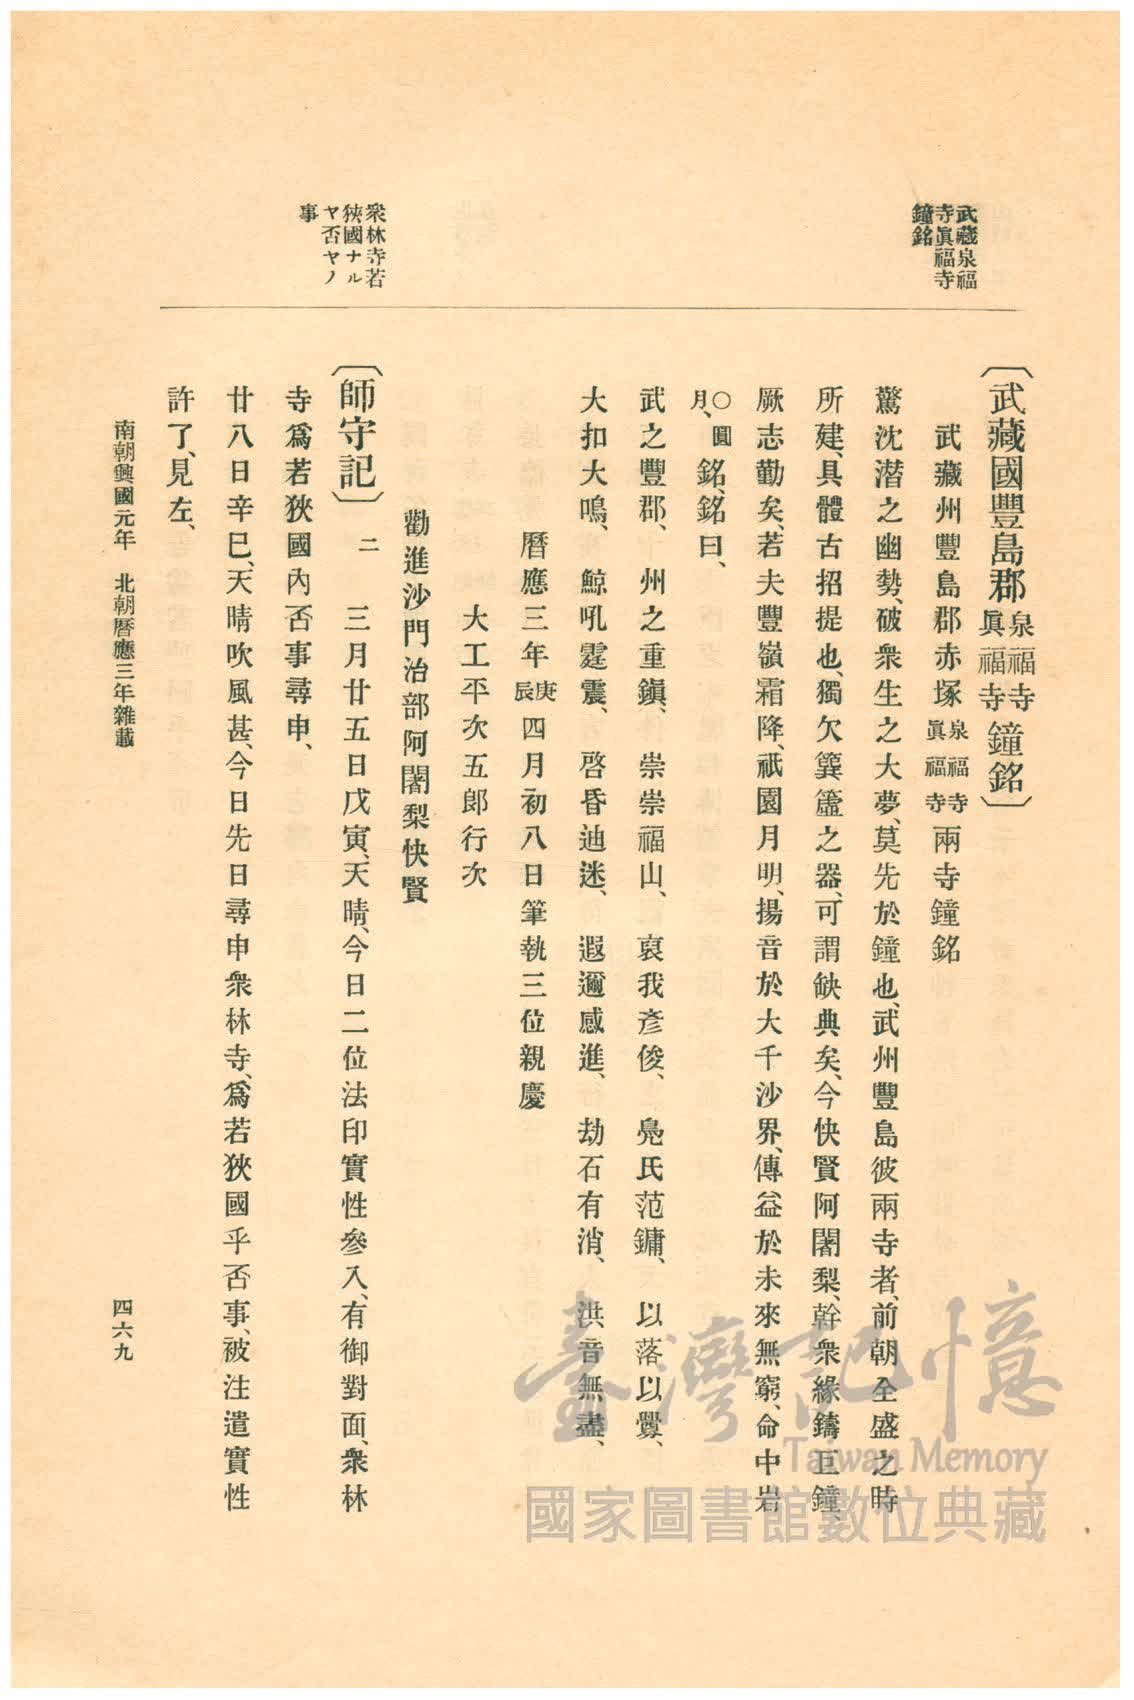 武藏泉福
寺眞福寺
鐘銘
衆林寺若
狹國ナル
ヤ否ヤノ
事
〔武藏國豐島郡泉福寺眞福寺鐘銘〕
武藏州豐島郡赤塚泉福寺眞福寺兩寺鐘銘
驚沈潜之幽勢、破衆生之大夢、莫先於鐘也、武州豐島彼兩寺者、前朝全盛之時
所建、具體古招提也、獨欠簨簴之器、可謂缺典矣、今快賢阿闍梨、幹衆緣鑄巨鐘、
厥志勤矣、若夫豐嶺霜降、祇園月明、揚音於大千沙界、傳益於未來無窮、命中岩
○圓月、銘、銘曰、
武之豐郡、州之重鎭、崇崇福山、哀我彥俊、鳧氏范鏞、以落以釁、
大扣大鳴、鯨吼霆震、啓昏迪迷、遐邇感進、劫石有消、洪音無盡、
曆應三年庚辰四月初八日筆執三位親慶
大工平次五郎行次
勸進沙門治部阿闍梨快賢
〔師守記〕二 三月廿五日戊寅、天晴、今日二位法印實性參入、有御對面、衆林
寺爲若狹國內否事尋申、
廿八日辛巳、天晴吹風甚、今日先日尋申衆林寺、爲若狹國乎否事、被注遣實性
許了、見左、
南朝興國元年 北朝曆應三年雜載
四六九
臺灣記憶
Taiwan Memory
國家圖書館數位典藏